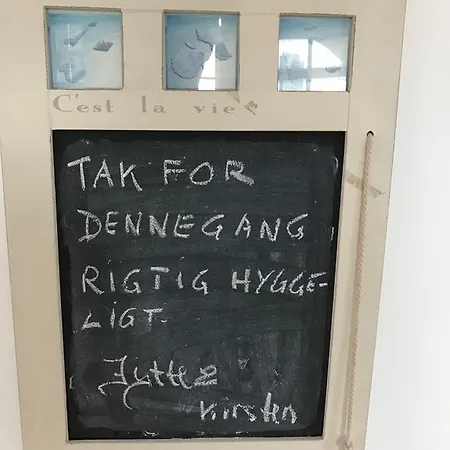 C'est la vie
TAK FOR
DENNEGANG
RIGTIG HYGGE-
LIGT.
Jytte &
Kirsten